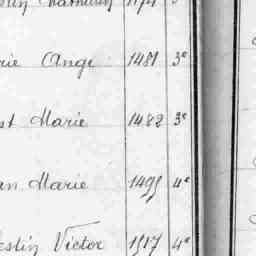 rie Ange 1481 3e
st Marie 1482 3e
an Marie 1495 4e
estin Victor 1517 4e